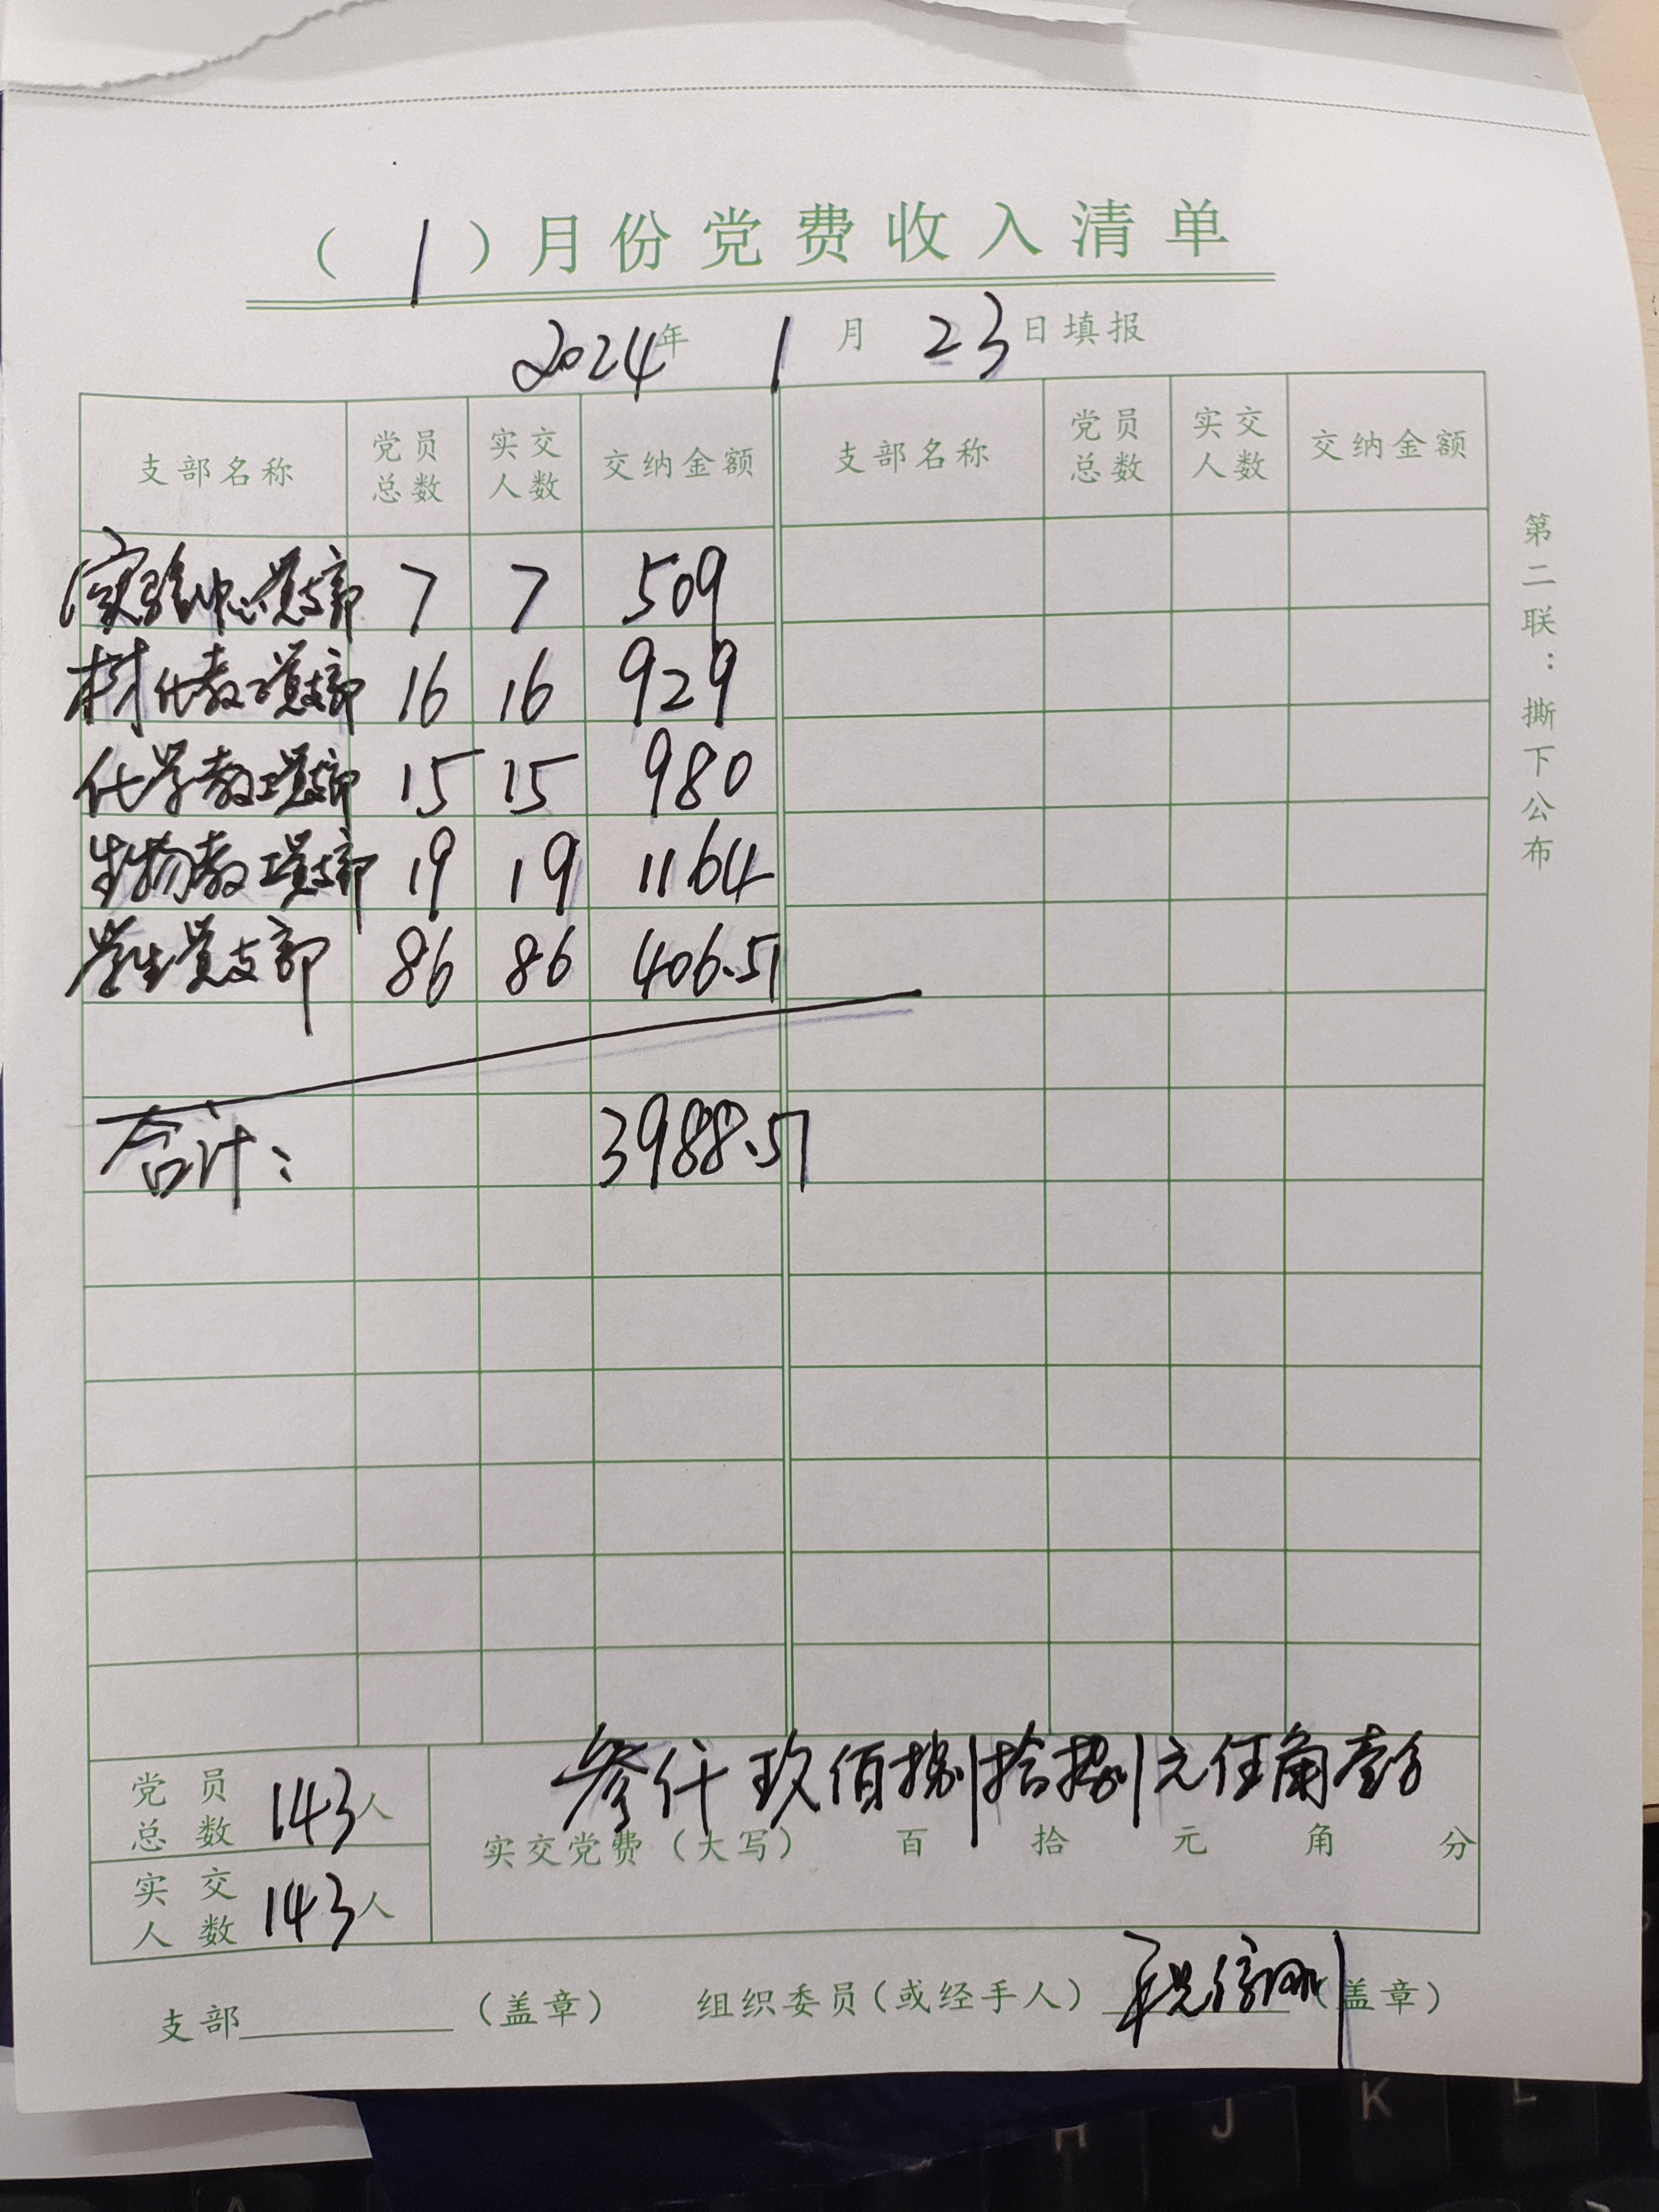 （1）月份党费收入清单
2024年 1月 23日填报
支部名称 党员总数 实交人数 交纳金额 支部名称 党员总数 实交人数 交纳金额
实验中心党支部 7 7 509
材化教工党支部 16 16 929
化学教工党支部 15 15 980
生物教工党支部 19 19 1164
学生党支部 86 86 406.51
合计： 3988.51
党员总数 143人
实交人数 143人
叁仟玖佰捌拾捌元伍角壹分
实交党费（大写） 百 拾 元 角 分
支部（盖章） 组织委员（或经手人）祝信刚（盖章）
第二联：撕下公布
H J K L
A